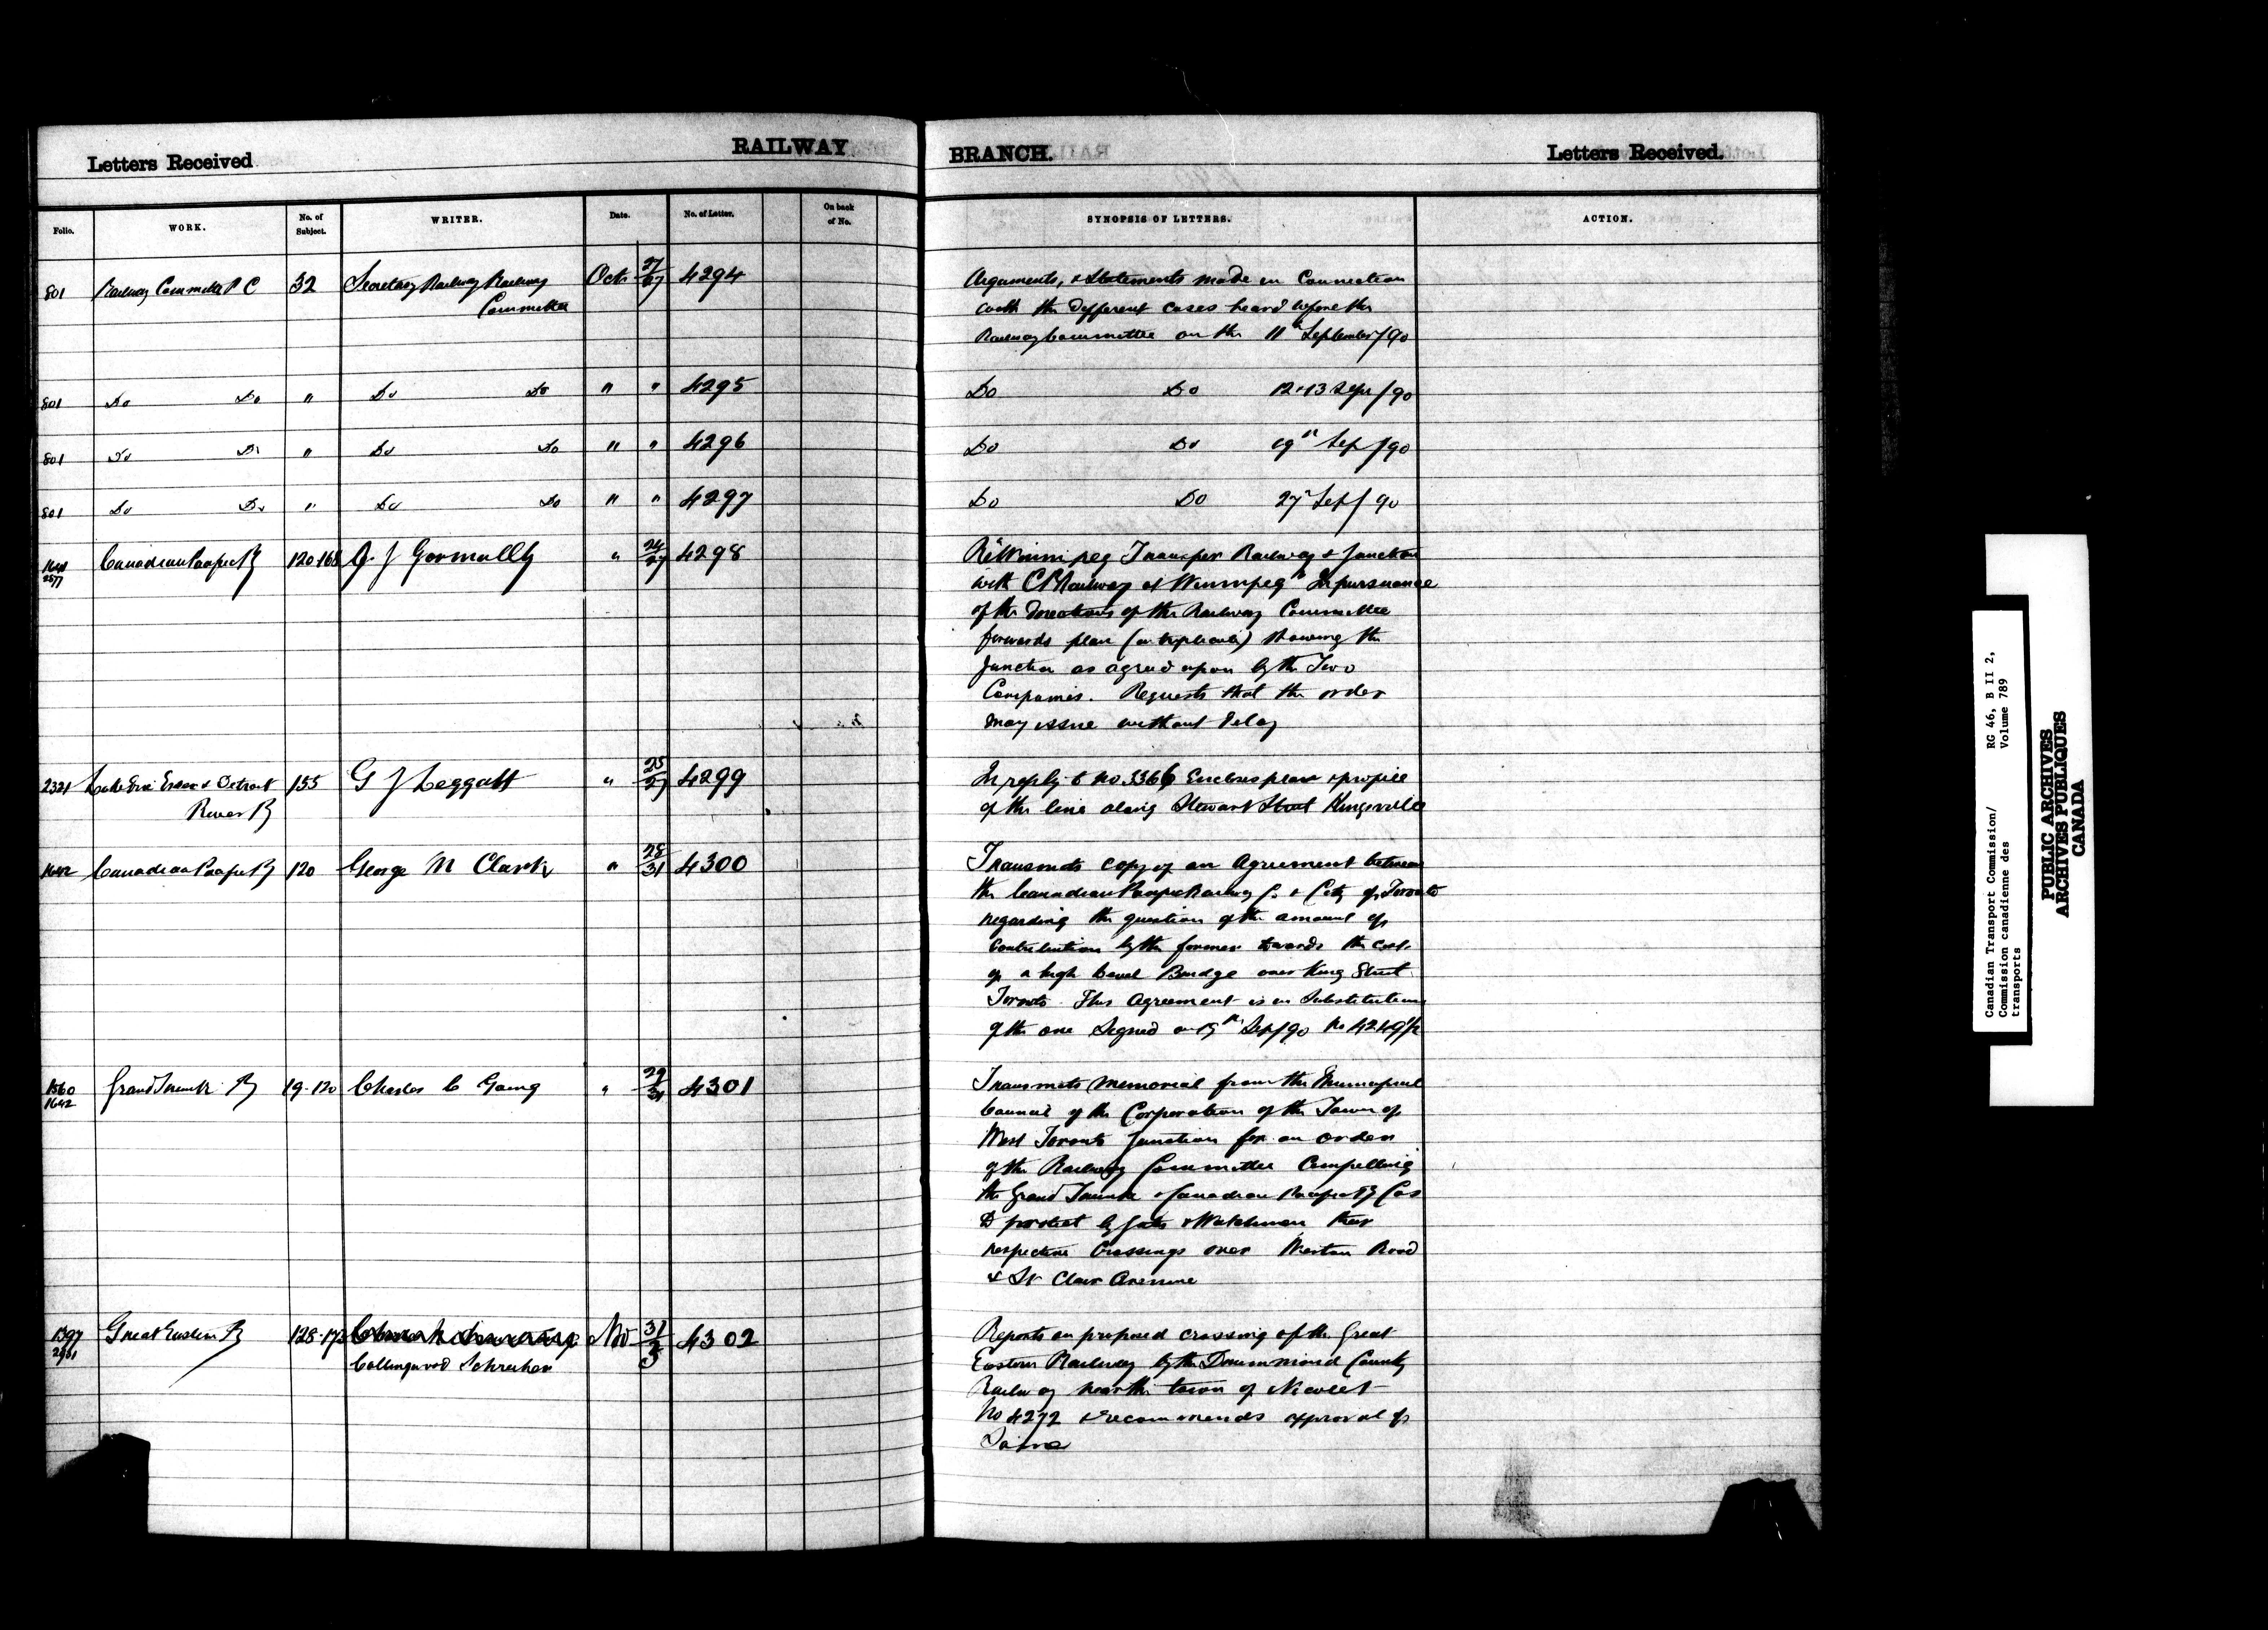 Letters Received
RAILWAY
BRANCH.
Letters Received.
Folio.
WORK.
No. of Subject.
WRITER.
Date.
No. of Letter.
On back of No.
SYNOPSIS OF LETTERS.
ACTION.
801 Railway Committee P C 32 Secretary Railway Railway Oct 27/27 4294 Arguments, & Statements made in Connection
Committee with the different cases heard before the
Railway Committee on the 11th September/90
801 Do Do " Do Do " " 4295 Do Do 12 & 13 Sepr/90
801 Do Do " Do Do " " 4296 Do Do 19th Sep/90
801 Do Do " Do Do " " 4297 Do Do 27th Sep/90
1641 Canadian Pacific Ry 120-168 J Gormully " 24/27 4298 Re Winnipeg Transfer Railway & Junction
2577 with C P Railway at Winnipeg" In pursuance
of the directions of the Railway Committee
forwards plan (in triplicate) showing the
Junction as agreed upon by the Two
Companies. Requests that the order
may issue without delay
2321 Lake Erie Essex & Detroit 155 G J Leggatt " 25/27 4299 In reply to No 3366 Encloses plan & profile
River Ry of the line along Stewart Street Kingsville
1642 Canadian Pacific Ry 120 George M Clark " 28/31 4300 Transmits copy of an Agreement between
the Canadian Pacific Railway Co & City of Toronto
regarding the question of the amount of
Contribution by the former towards the cost
of a high level Bridge over King Street
Toronto. This Agreement is in Substitution
of the one Signed on 15th Sep/90 No 4249½
1560 Grand Trunk Ry 19-120 Charles C Going " 29/31 4301 Transmits Memorial from the Municipal
1642 Council of the Corporation of the Town of
West Toronto Junction for an order
of the Railway Committee Compelling
the Grand Trunk & Canadian Pacific Ry Cos
to protect by gates & Watchmen their
respective Crossings over Weston Road
& St Clair Avenue
1397 Great Eastern Ry 128-173 Nov 31/3 4302 Reports on proposed crossing of the Great
Collingwood Schreiber Eastern Railway by the Drummond County
Railway near the town of Nicolet
No 4272 & recommends approval of
Same
Canadian Transport Commission/
Commission canadienne des
transports
RG 46, B II 2,
Volume 789
PUBLIC ARCHIVES
ARCHIVES PUBLIQUES
CANADA